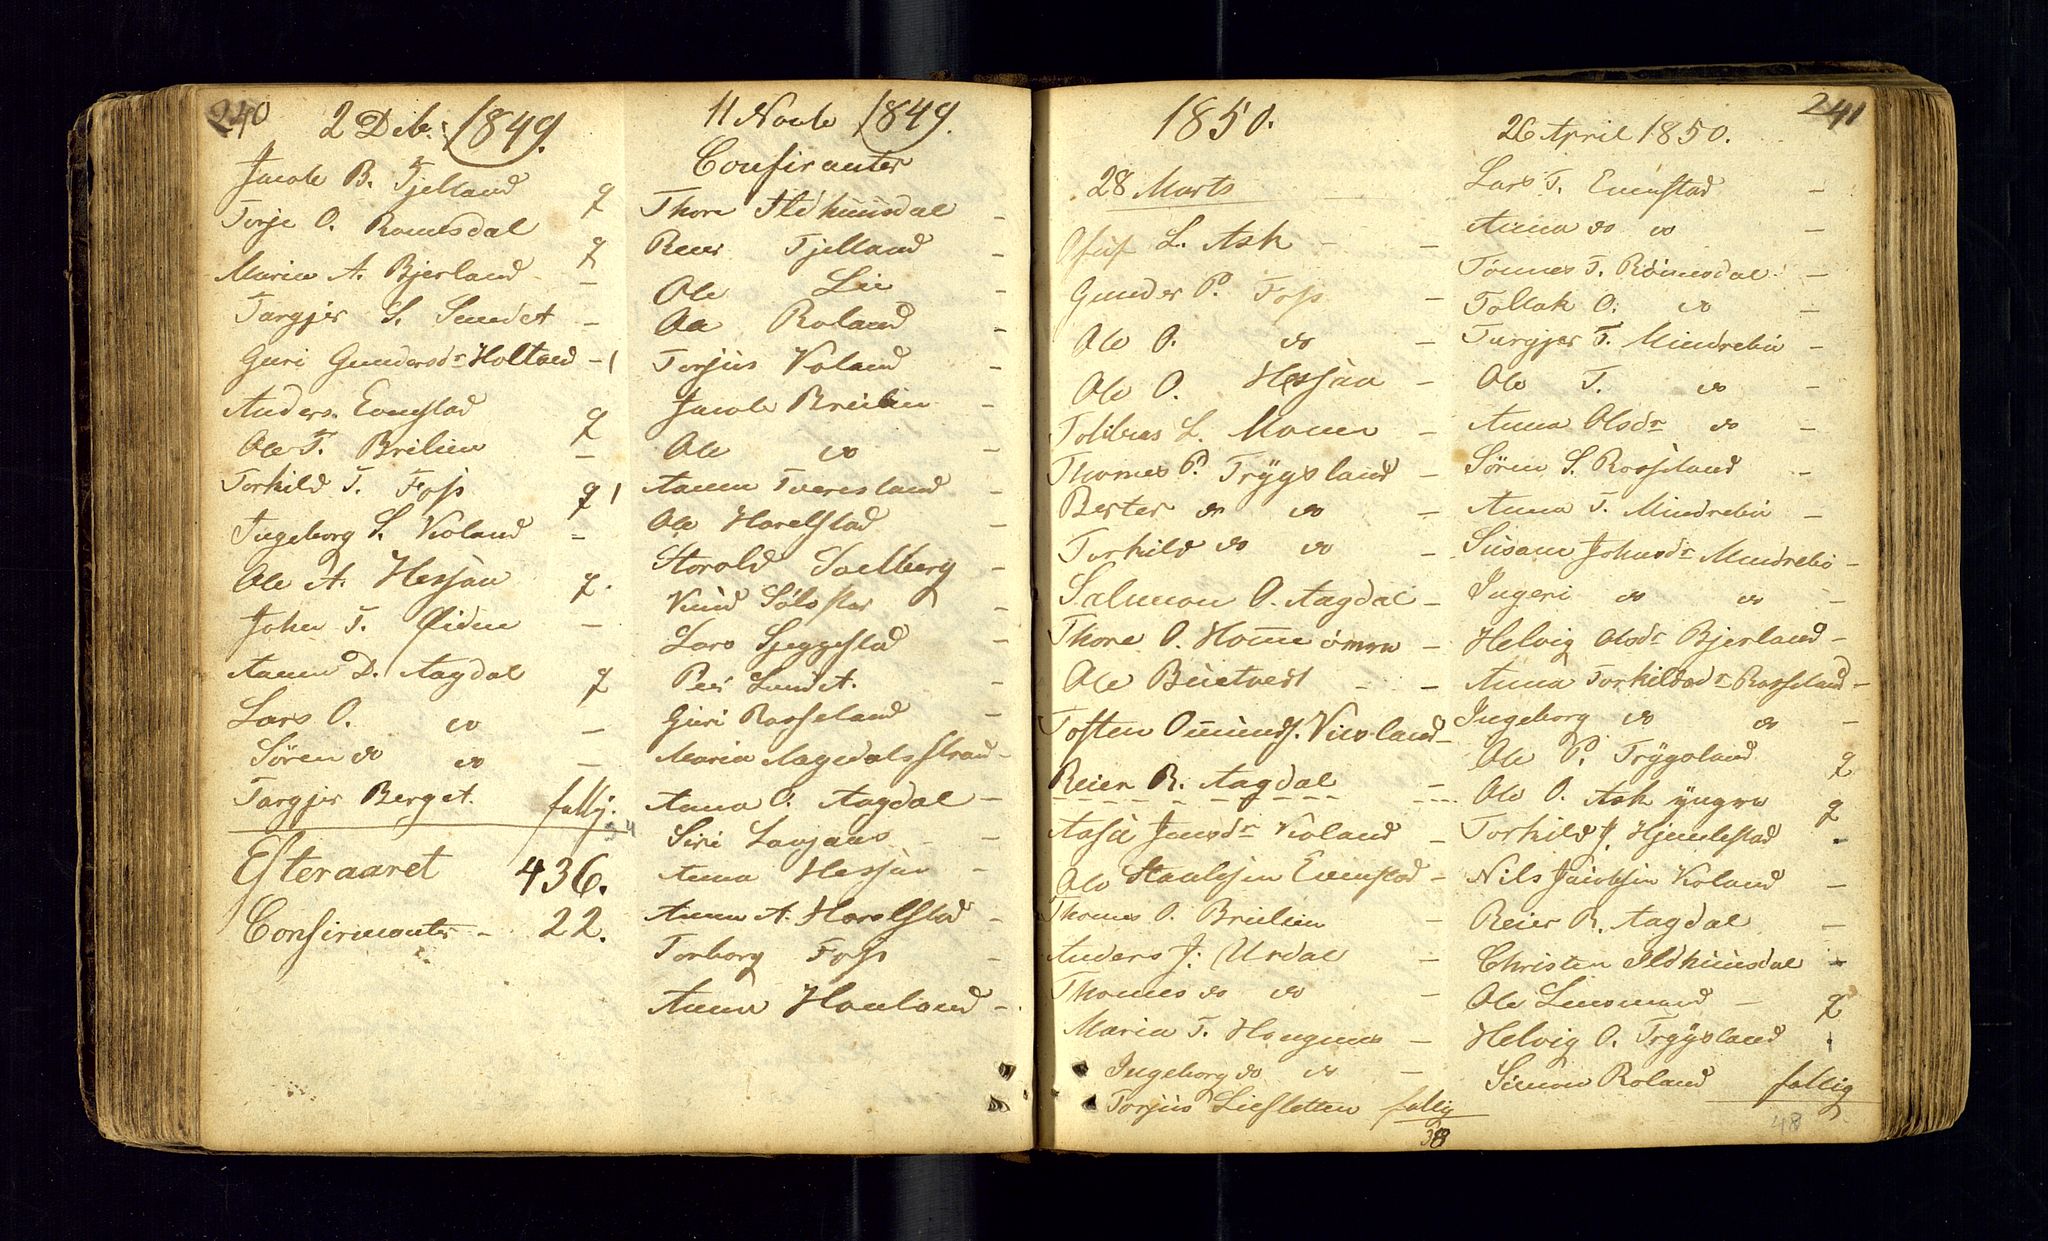 240
2 Deb. 1849.
Jacob B. Fjelland q
Torje O. Romesdal q
Maria A. Bjerland -
Targjer S. Sundet -
Guri Gundersdr Holtand - 1
Anders Evenstad q
Ole T. Breilien -
Torkild T. Foss q 1
Ingeborg L. Voland =
Ole A. Hessaa q.
John T. Øiden -
Aanen D. Aagdal q
Lars O. do -
Søren do do -
Targjer Berget fallig.
34
Efteraaret 436.
Confirmanter - 22.
11 Novb 1849.
Confiranter
Thore Ildhuusdal -
Reier Fjelland -
Ole Lie -
Aa Roland -
Torjus Voland -
Jacob Breilien -
Ole do -
Aanen Tveresland -
Ole Harelstad -
Harald Solberg -
Knud Sølosler -
Lars Sjeggestad -
Peer Sundet. -
Guri Rosseland -
Maria Aagedalsstrand -
Anna O. Aagdal -
Siri Laujaas -
Anna Hessaa -
Anna A. Harelstad -
Torborg Foss -
Anna Hauland -
1850.
28 Marts
L. Ask - -
Gunder P. Foss -
Ole O. do -
Ole O. Hessaa -
Tobias L. Moen -
Thomes P. Trygsland -
Berter do do -
Torkild do do -
Salmon O. Aagdal -
Thore O. Homme -
Ole Buetvedt - -
Tosten Omunds. Vivland -
Reier R. Aagdal -
Aasa Jonsdr Voland -
Ole Staalesen Evenstad -
Thomes O. Breilien -
Anders J. Urdal -
Thomes do do -
Maria T. Hougeness -
Ingeborg do do -
Torjus Liesletten fallig
38
241
26 April 1850.
Lars T. Evenstad -
Anna do do -
Tønnes T. Røimesdal -
Tollak O. do -
Targjer T. Mindrebø -
Ole T. do -
Anna Olsdr do -
Søren S. Rosseland -
Anna T. Mindrebø -
Susann Johnsdr Mindrebø -
Ingeri do do -
Helvig Olsdr Bjerland -
Anna Torkildsdr Rosseland -
Ingeborg do do -
Ole P. Trygsland q
Ole O. Ask yngre q
Torkild J. Hjemlestad -
Nils Jacobsen Voland -
Reier R. Aagdal -
Christen Ildhuusdal -
Ole Lensmand - q
Helvig O. Trygsland -
Simon Roland fallig
48